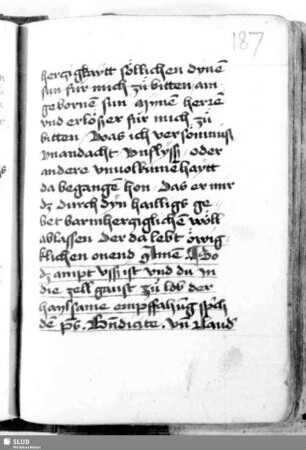 187
hertzigkaytt söllichen dynē
sun für mich zů bitten, ain
gebornē sun mīnen herrē
vnd erlösser für mich zů
bitten, Was ich versomniss
vnandacht vnflyss, oder
andere vnuolkumēhaytt
da begangē hon, Das er mir
dz durch dyn hailligs ge
bet barmhertziglichen wöll
ablassen der da lebt öwig
klichen on end Amē. So
dz ampt vss ist vnd du in
die zell gaust zů lob der
haylsamē empffahūg sprich
dē ps. Bn̄dicite. vn̄ Laud
SLUB